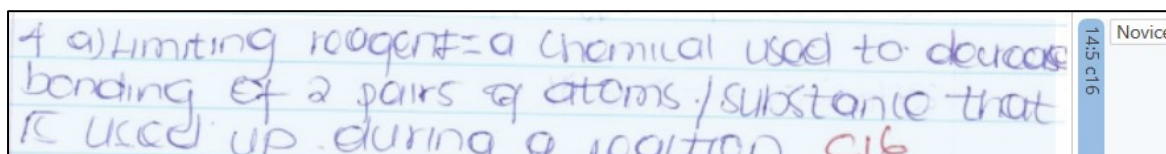 4 a) Limiting reagent = a chemical used to decrease
bonding of 2 pairs of atoms. / substance that
is used up during a reaction c16
14:5 c16
Novice